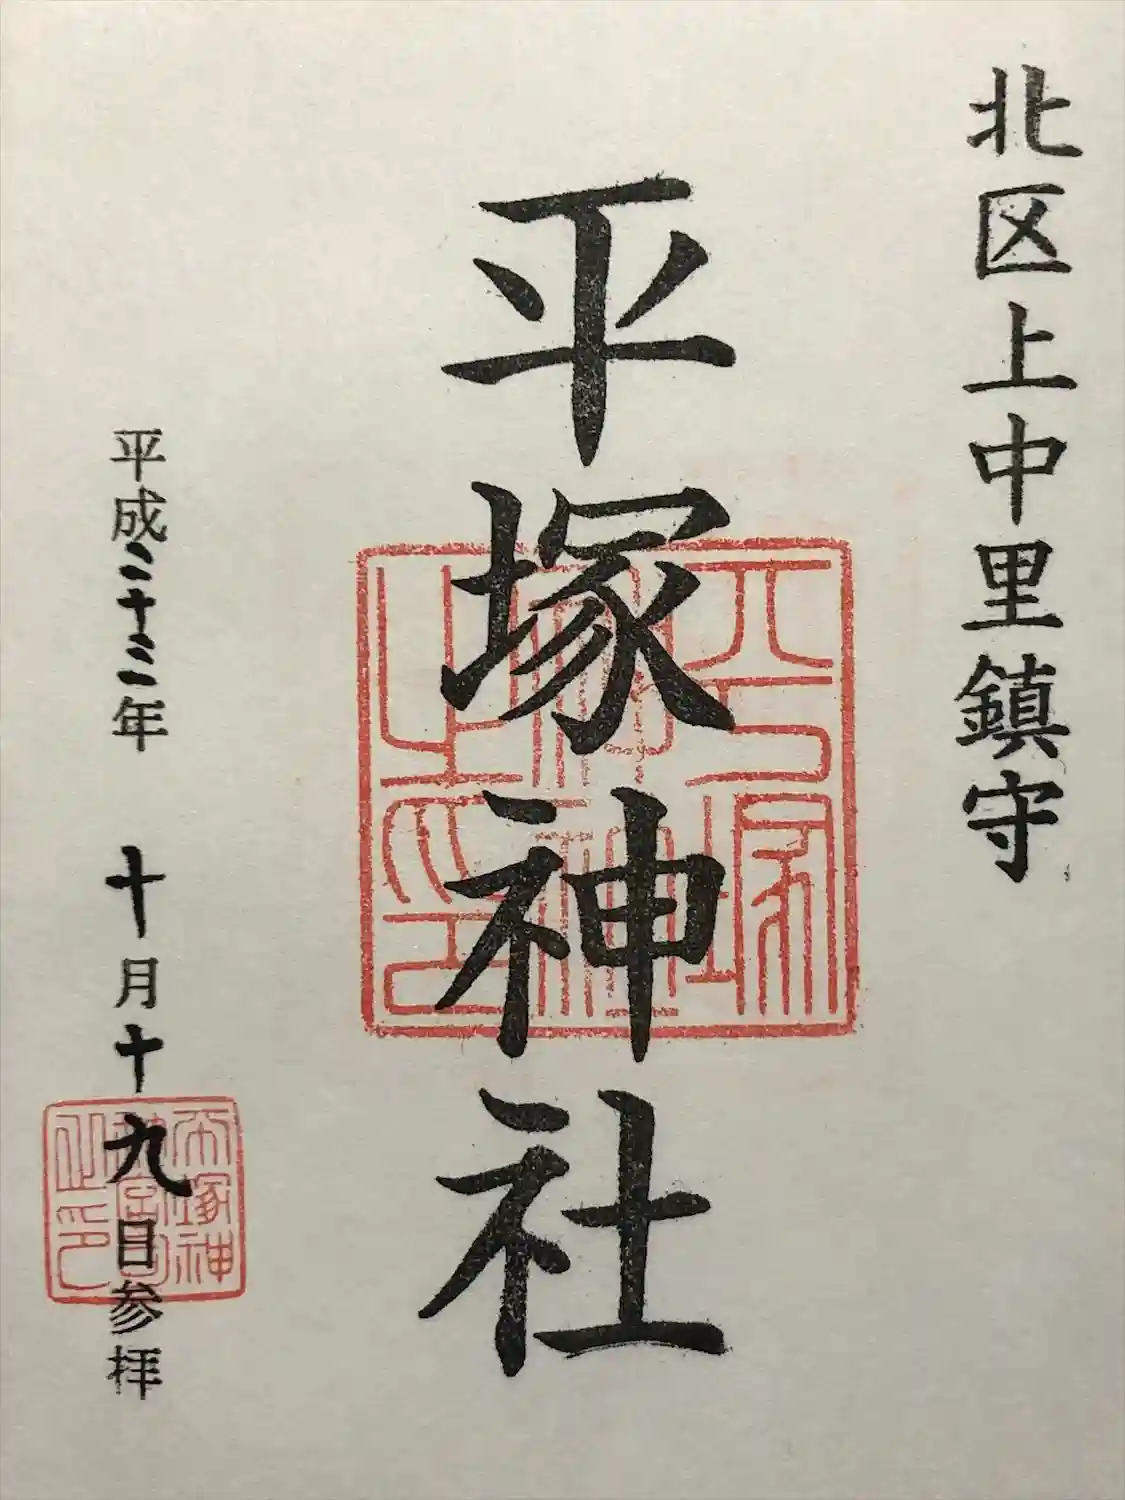 北区上中里鎮守
平塚神社
平塚
神社
之印
平成二十二年 十月十九日参拝
平塚神
社宮司
之印